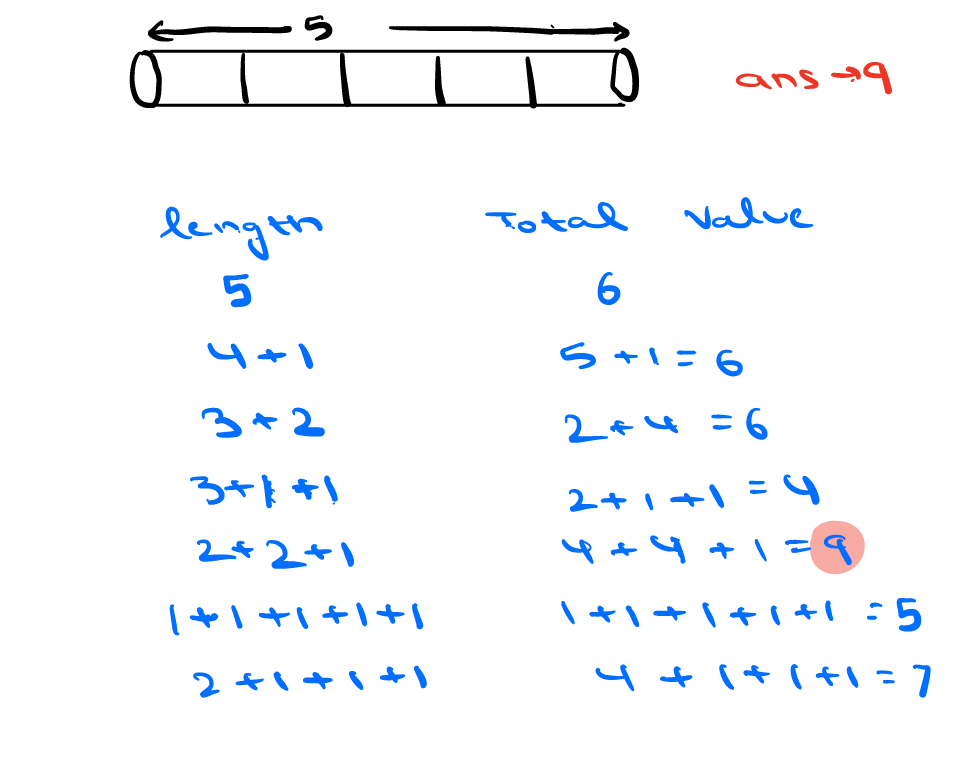 5
ans → 9
length Total Value
5 6
4 + 1 5 + 1 = 6
3 + 2 2 + 4 = 6
3 + 1 + 1 2 + 1 + 1 = 4
2 + 2 + 1 4 + 4 + 1 = 9
1 + 1 + 1 + 1 + 1 1 + 1 + 1 + 1 + 1 = 5
2 + 1 + 1 + 1 4 + 1 + 1 + 1 = 7